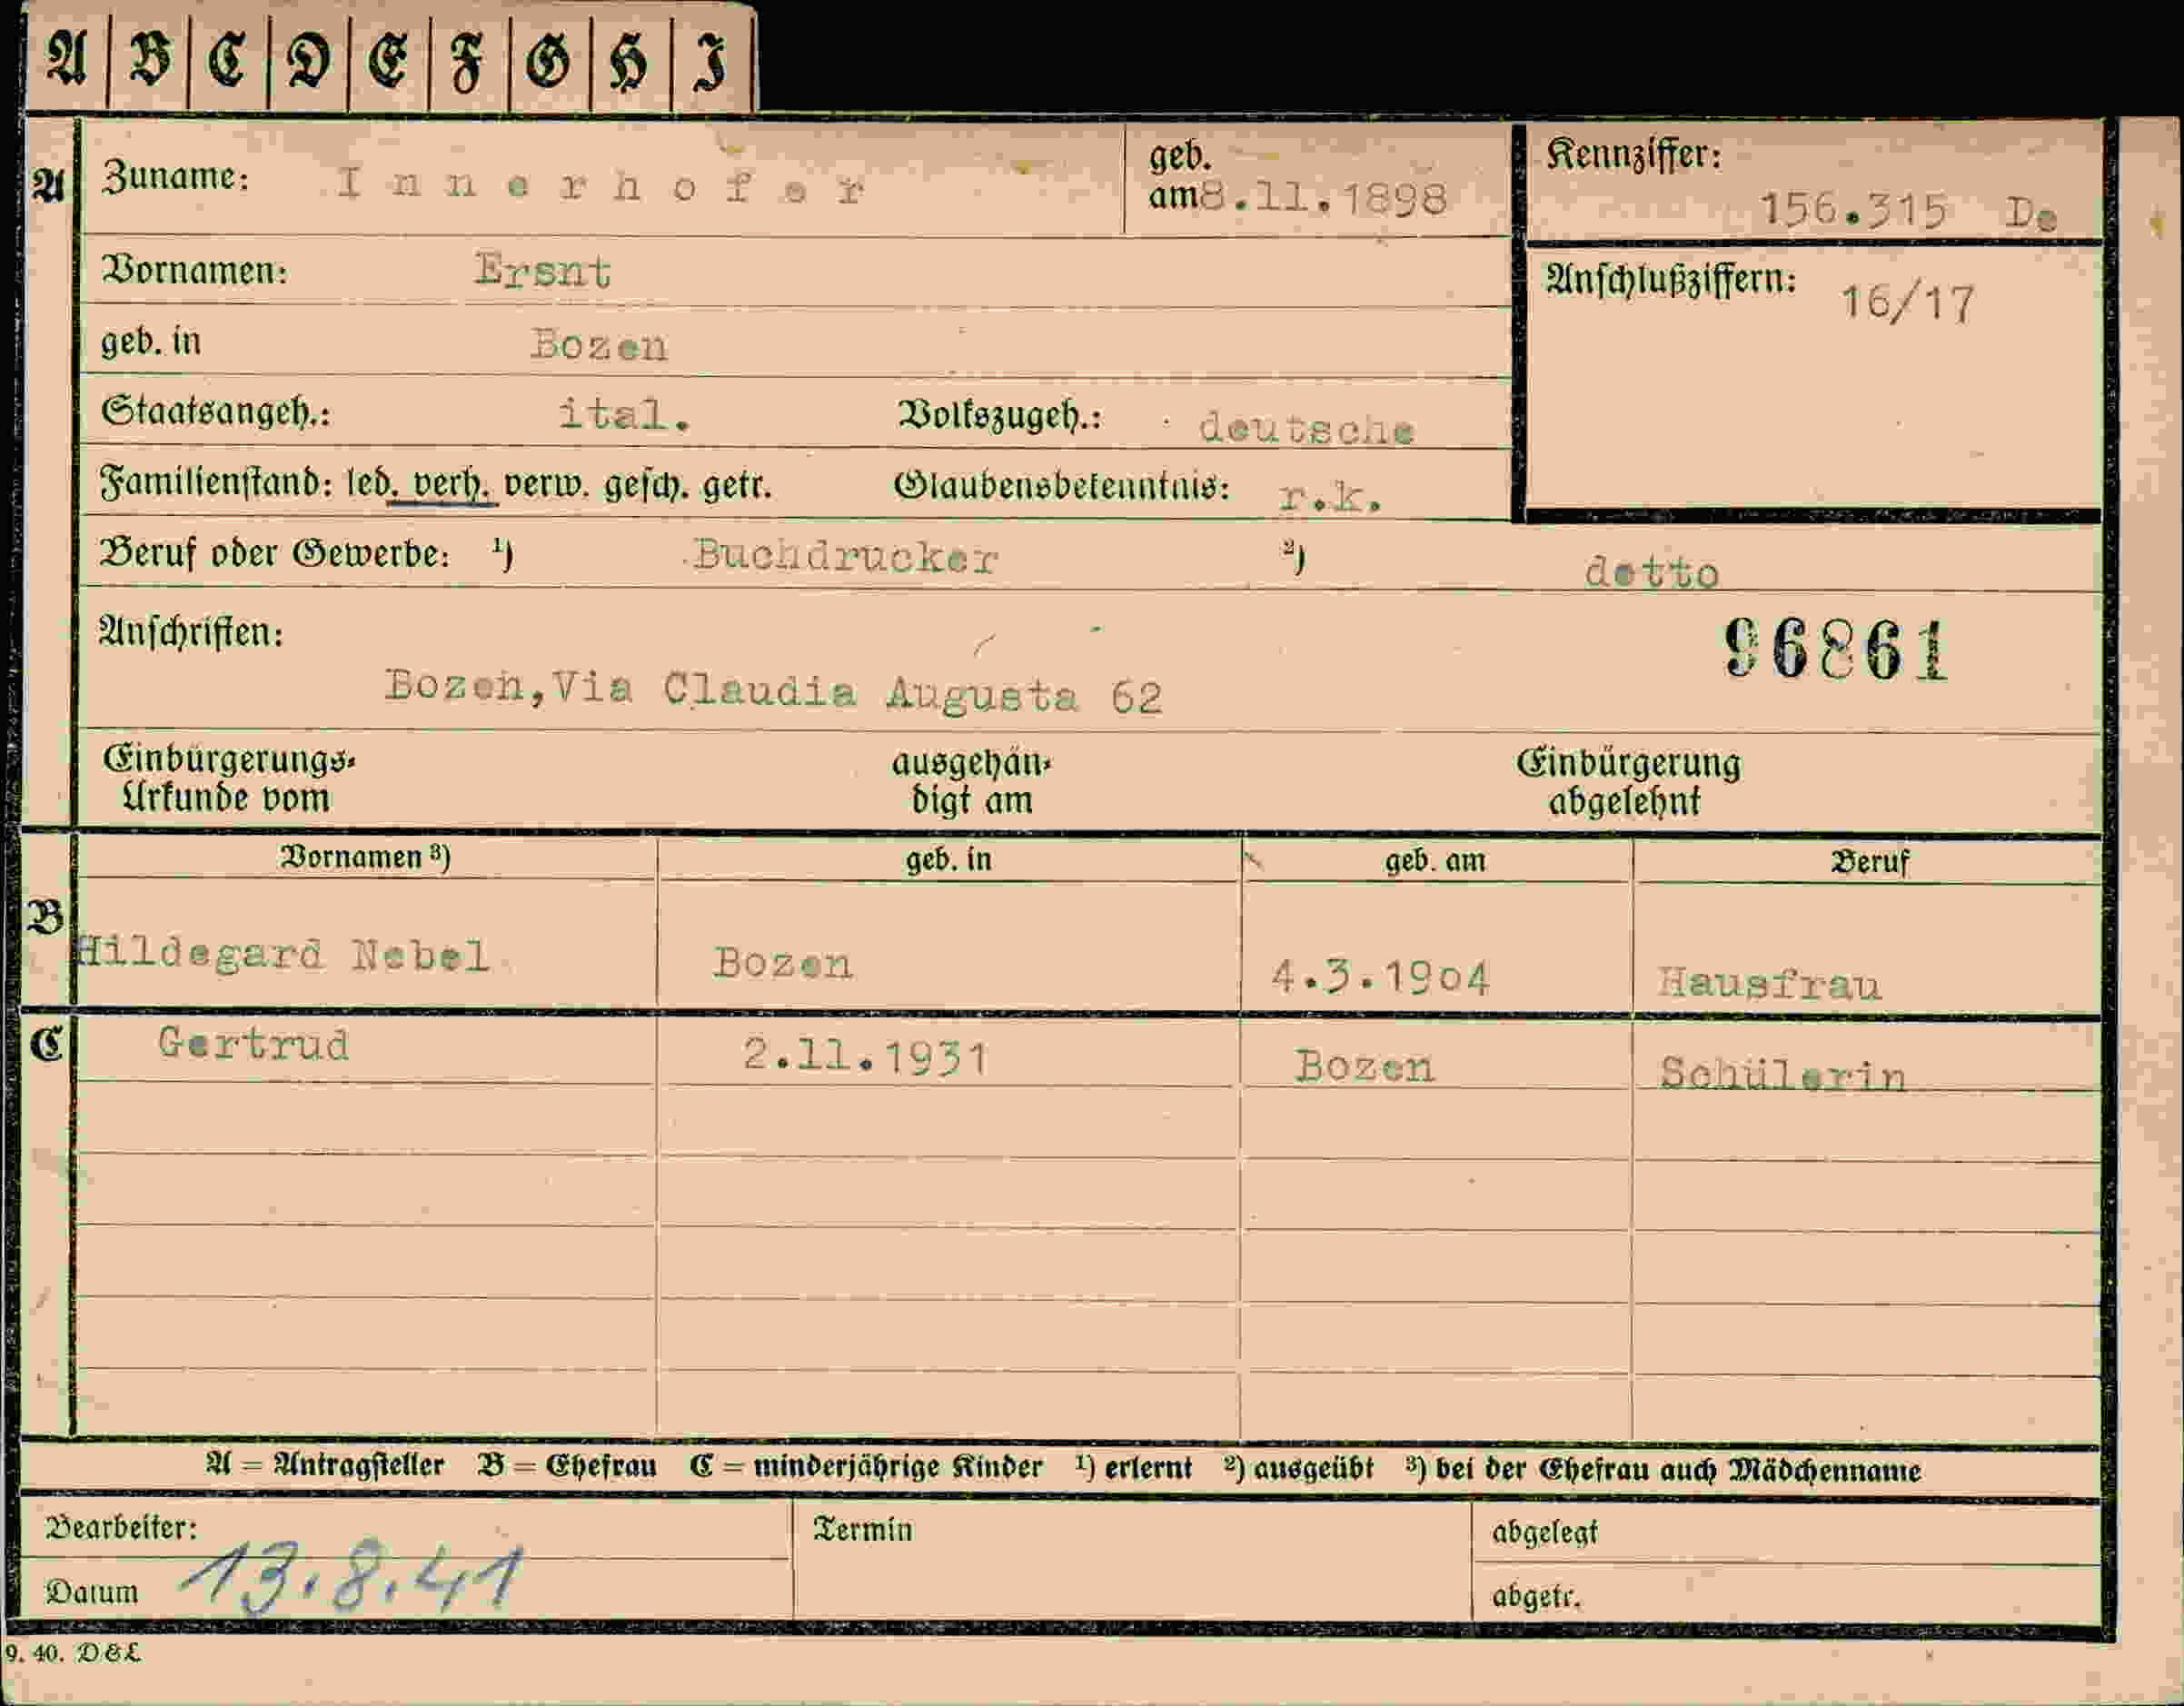 A B C D E F G H I
A Zuname: Innerhofer geb. am 8.11.1898 Kennziffer: 156.315 De
Vornamen: Ersnt Anschlußziffern: 16/17
geb. in Bozen
Staatsangeh.: ital. Volkszugeh.: deutsche
Familienstand: led. verh. verw. gesch. getr. Glaubensbekenntnis: r.k.
Beruf oder Gewerbe: ¹) Buchdrucker ²) detto
Anschriften: 96861
Bozen,Via Claudia Augusta 62
Einbürgerungs- ausgehän- Einbürgerung
Urkunde vom digt am abgelehnt
Vornamen ³) geb. in geb. am Beruf
B Hildegard Nebel Bozen 4.3.1904 Hausfrau
C Gertrud 2.11.1931 Bozen Schülerin
A = Antragsteller B = Ehefrau C = minderjährige Kinder ¹) erlernt ²) ausgeübt ³) bei der Ehefrau auch Mädchenname
Bearbeiter: Termin abgelegt
Datum 13.8.41 abgetr.
9. 40. D&L